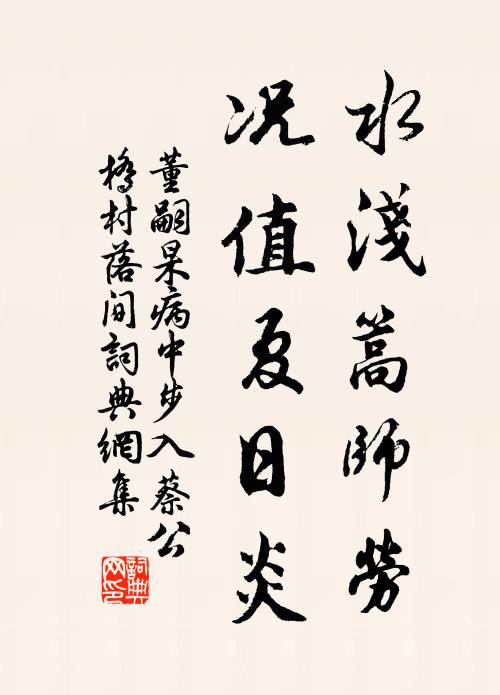 水淺篙師勞
况值夏日炎
董嗣杲病中步入蔡公
橋村落间詞典網集
詞典网印